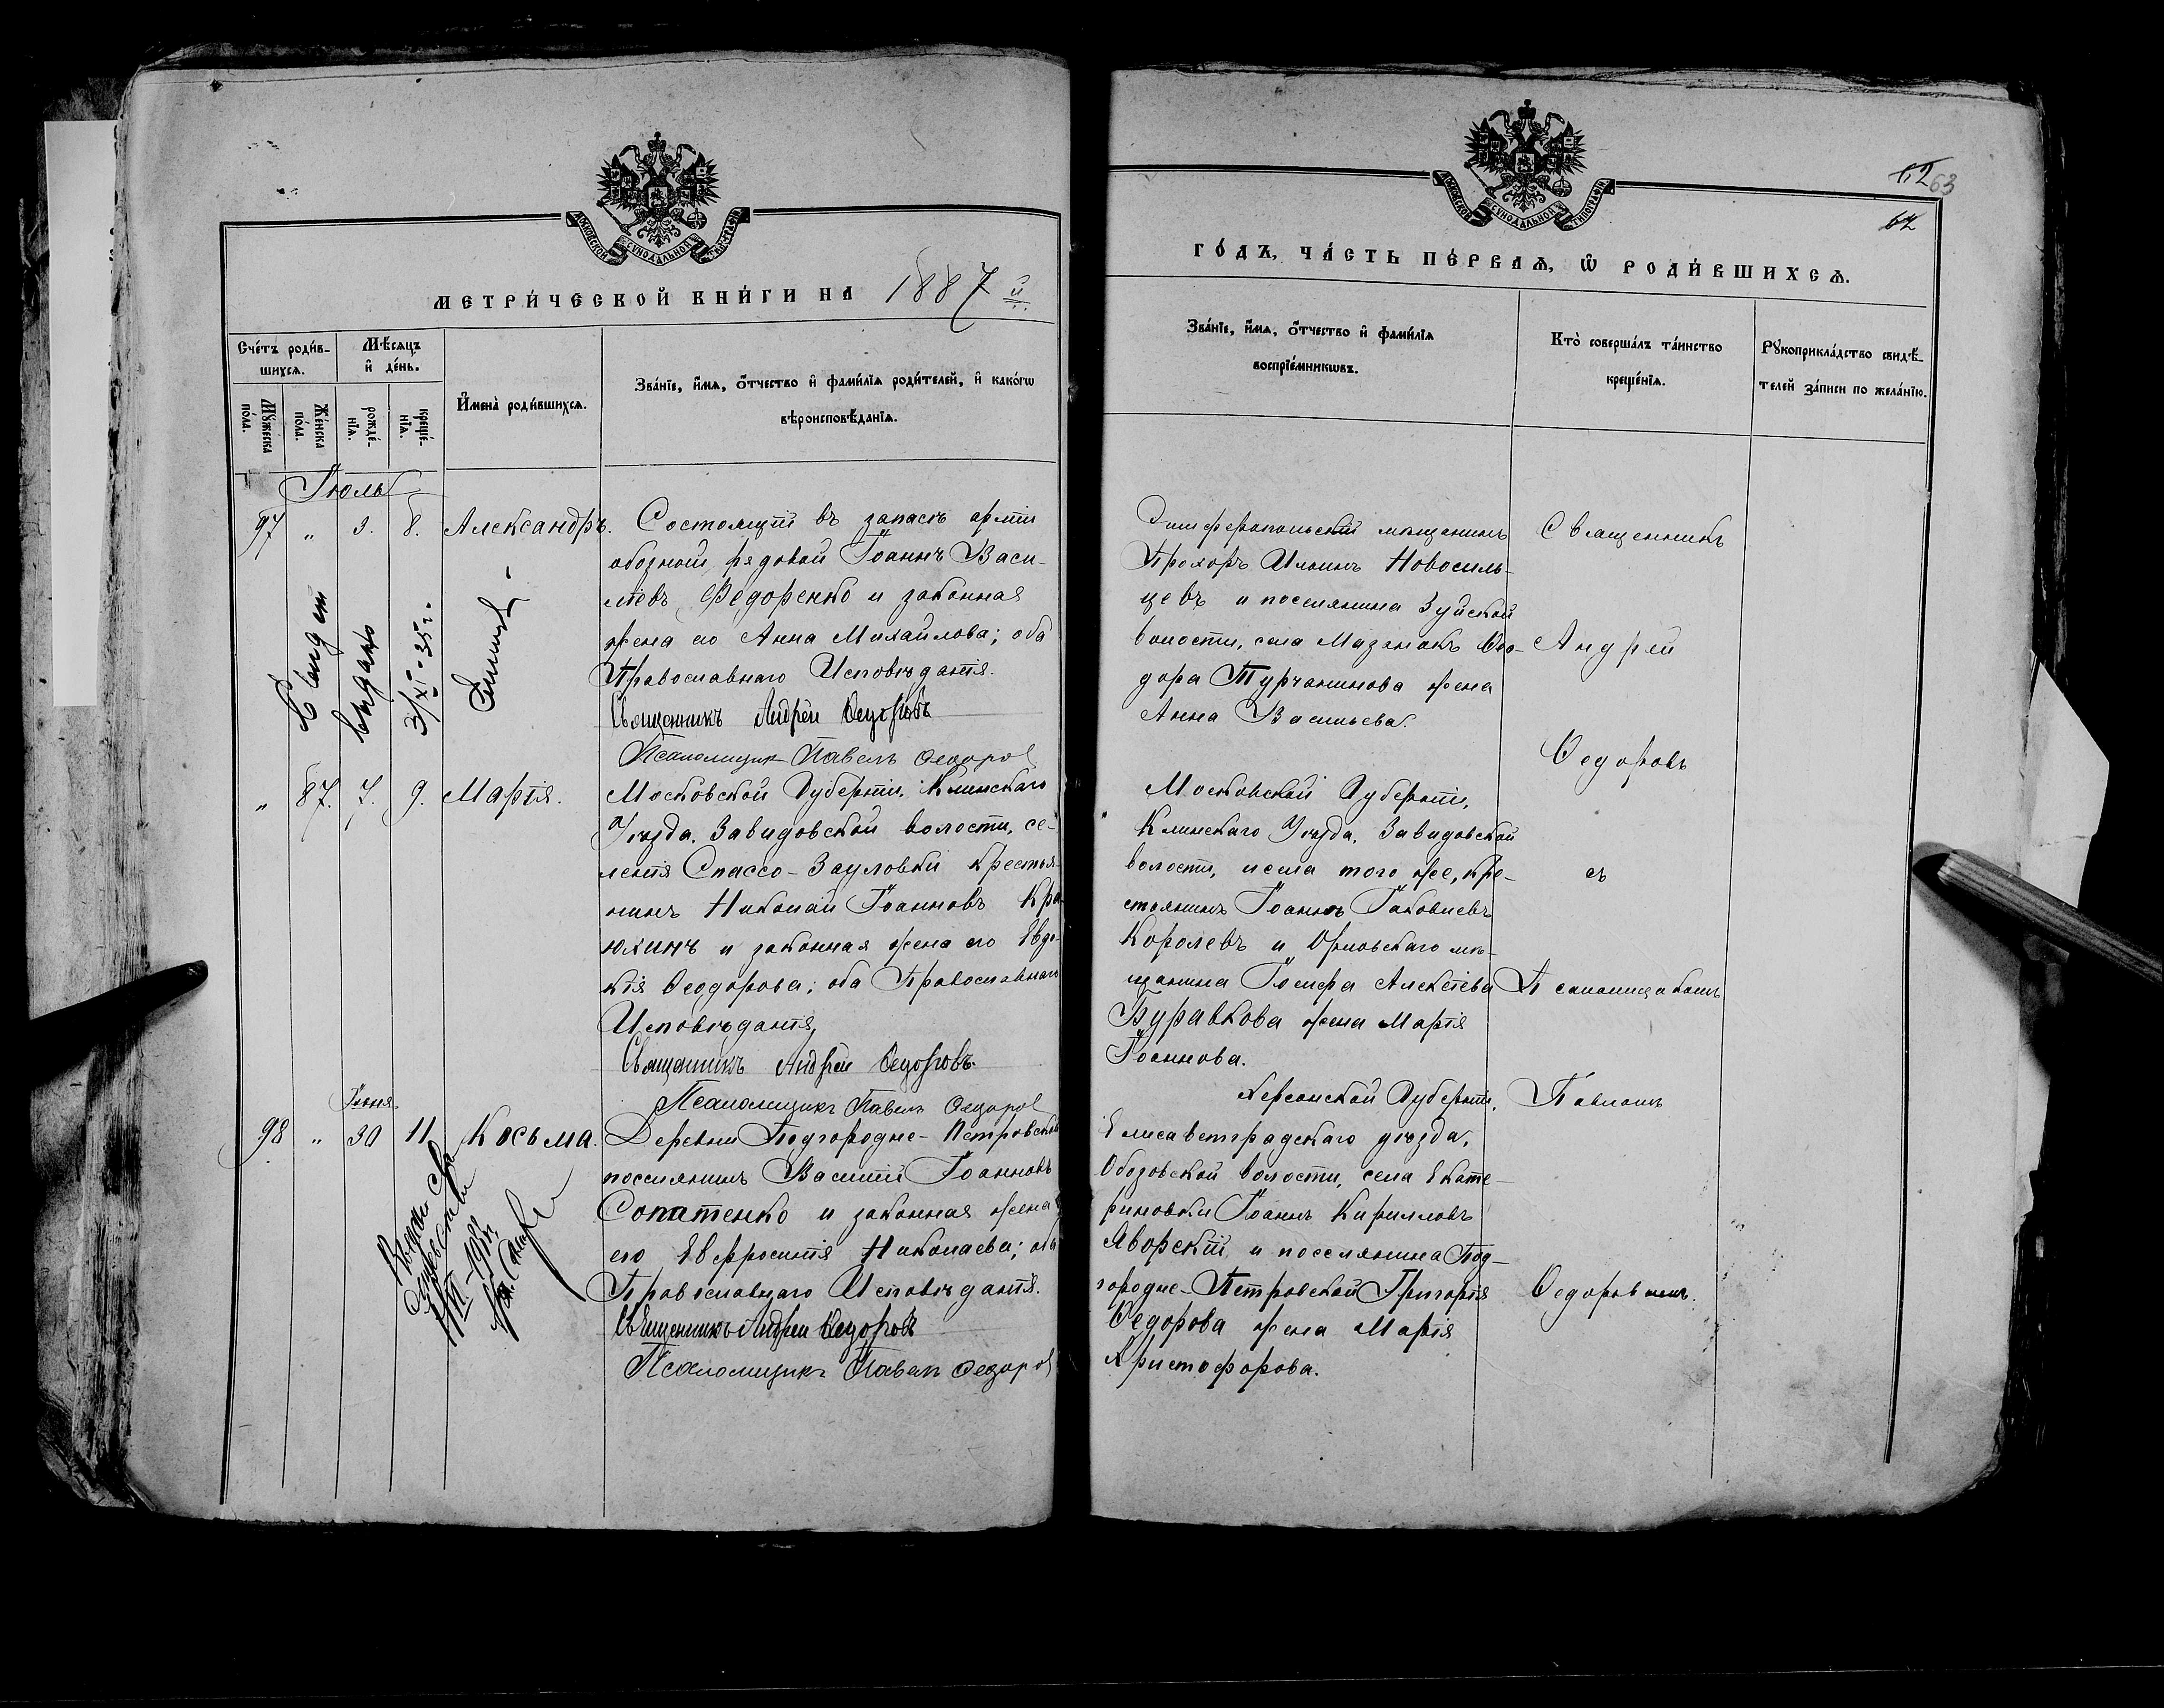 МОСКОВСКОЙ СУНОДАЛЬНОЙ ТИПОГРАФІИ
МЕТРИ́ЧЕСКОЙ КНИ́ГИ НА 1887 й
Сче́тъ роди́в-
шихсѧ.
Мѣ́сяцъ
и҆ де́нь.
Мꙋ́жеска
по́ла.
Же́нска
по́ла.
рожде́-
нїѧ.
креще́-
нїѧ.
И҆мена̀ роди́вшихсѧ.
Зва́нїе, и҆́мѧ, ѻ҆́тчество и҆ фами́лїѧ роди́телей, и҆ како́гѡ
вѣроисповѣ́данїѧ.
Іюль
97 " 3. 8. Александръ. Состоящій въ запасѣ арміи
обозной рядовой Іоаннъ Васи-
ліевъ Федоренко и законная
жена его Анна Михайлова; оба
Православнаго Исповѣданія.
Священникъ Андрей Ѳедоровъ
Псаломщик Павелъ Ѳедоров
выдано
3/XI - 35 г.
" 87. 7. 9. Марія. Московской Губерніи, Клинскаго
Уѣзда, Завидовской волости, се-
ленія Спассо-Зауловки крестья-
нинъ Николай Іоанновъ Кра-
юхинъ и законная жена его Евдо-
кія Ѳеодорова; оба Православнаго
Исповѣданія,
Священникъ Андрей Ѳедоровъ.
Псаломщикъ Павелъ Ѳедоров
Іюня
98 " 30 11 Косьма. Деревни Подгородне-Петровской
поселянинъ Василій Іоанновъ
Сопатенко и законная жена
его Евфросинія Николаева; оба
Православнаго Исповѣданія.
Священникъ Андрей Ѳедоровъ
Псаломщикъ Павелъ Ѳедоров
МОСКОВСКОЙ СУНОДАЛЬНОЙ ТИПОГРАФІИ
63
62
ГО́ДЪ, ЧА́СТЬ ПЕ́РВАѦ, Ѡ҆ РОДИ́ВШИХСѦ.
Зва́нїе, и҆́мѧ, ѻ҆́тчество и҆ фами́лїѧ
воспрїе́мникѡвъ.
Кто̀ соверша́лъ та́инство
креще́нїѧ.
Рꙋкоприкла́дство свидѣ́-
телей за́писи по жела́нїю.
Симферопольскій мѣщанинъ
Прохоръ Ильинъ Новосиль-
цевъ и поселянина Зуйской
волости, села Мазанокъ Ѳео-
дора Турчанинова жена
Анна Васильева.
Священникъ
Андрей
Ѳедоровъ
Московской Губерніи,
Клинскаго Уѣзда, Завидовской
волости, и села того же, кре-
стьянинъ Іоаннъ Іаковлевъ
Королевъ и Орловскаго мѣ-
щанина Іосифа Алексіева
Журавкова жена Марія
Іоаннова.
съ
Псаломщикомъ
Павломъ
Ѳедоровымъ.
Херсонской Губерніи,
Елисаветградскаго уѣзда,
Обозовской волости, села Екате-
риновки Іоаннъ Кирилловъ
Яворскій и поселянина Под-
городне-Петровской Григорія
Ѳедорова жена Марія
Христофорова.